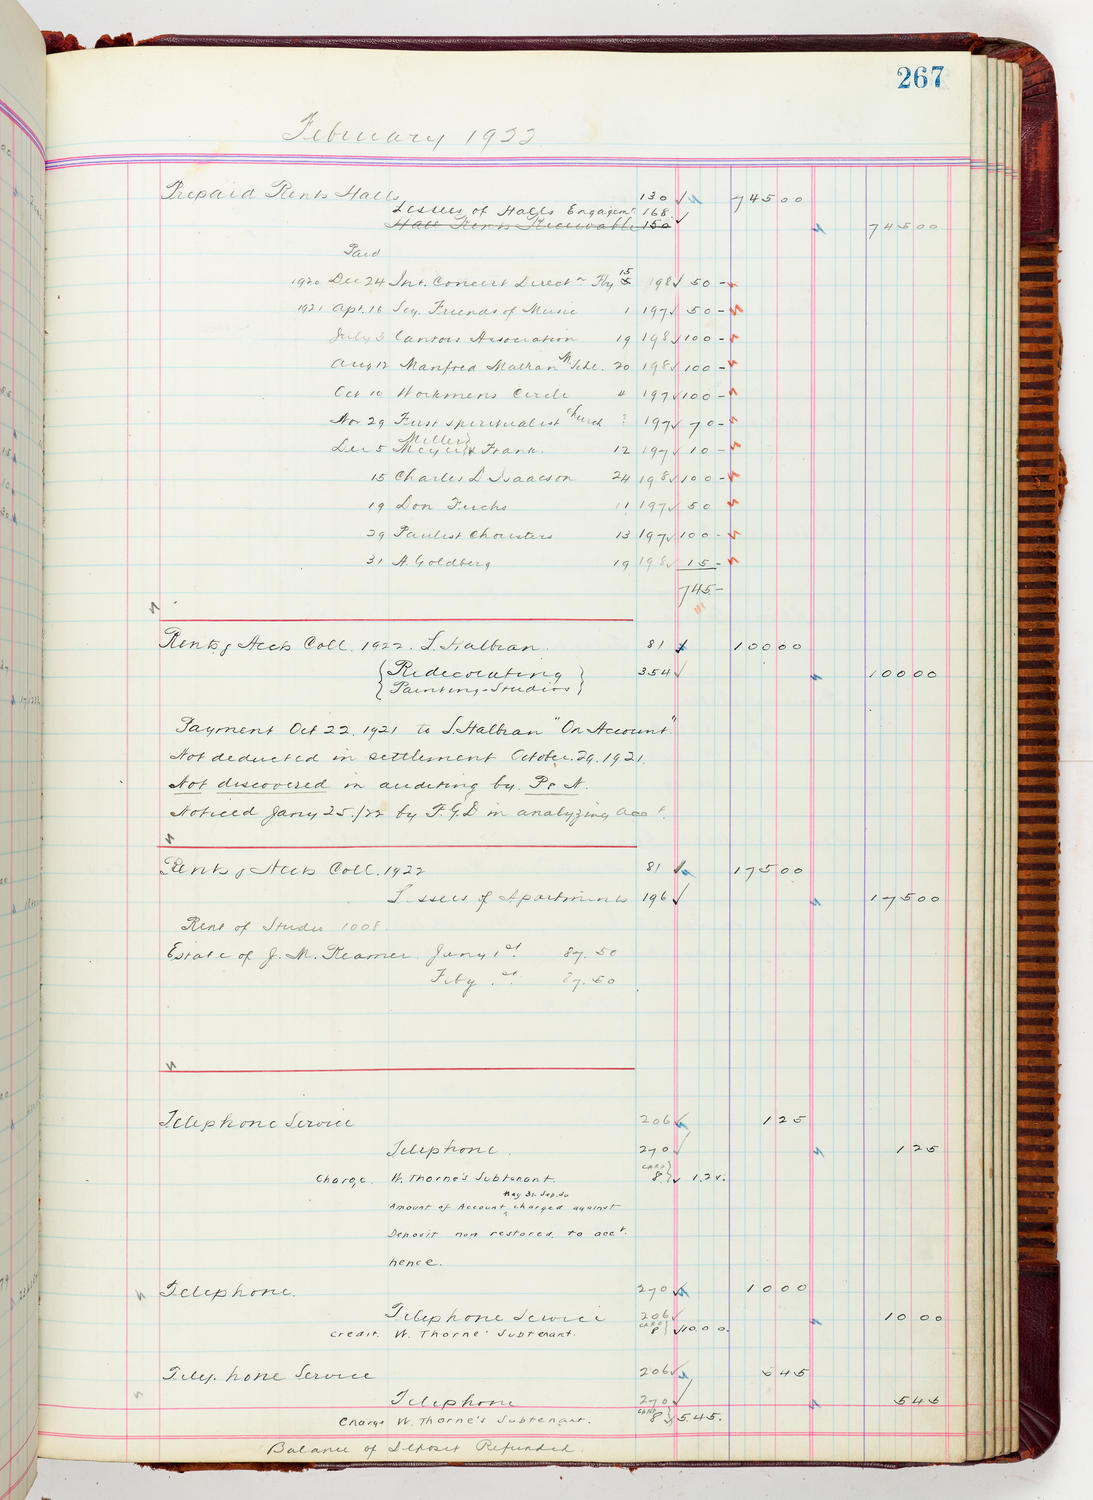 267
February 1922
Prepaid Rents Halls 130 745 00
Lessees of Halls Engagemt. 168
Hall Rents Receivable 150 745 00
Paid
1920 Dec 24 Int. Concert Direct'n Fby 15 198 50 -
1921 Apr. 16 Soc. Friends of Music 1 197 50 -
July 3 Cantors Association 19 198 100 -
Aug 12 Manfred Malkan M. Schl. 20 198 100 -
Oct 10 Workmens Circle 4 197 100 -
Nov 29 First Spiritualist Church 197 70 -
Miller
Dec 5 & Frank. 12 197 10 -
15 Charles D Isaacson 24 198 100 -
19 Don Fuchs 11 197 50
29 Paulist Choristers 13 197 100 -
31 A. Goldberg 19 198 15 -
745 -
Rents & Accts Coll. 1922. S. Halbran. 81 100 00
{Redecorating} 354 100 00
{Painting-Studios}
Payment Oct 22, 1921 to S. Halbran "On Account"
Not deducted in settlement October. 29. 1921.
Not discovered in auditing by P & N.
Noticed Jany 25./22 by F.G.D in analyzing acct.
Rents & Accts Coll. 1922 81 175 00
Lessees of Apartments 196 175 00
Rent of Studio 1008.
Estate of J. M. Reamer Jany 1st. 87.50
Feby 1st. 87.50
Telephone Service 206 1 25
Telephone. 270 1 25
Charge. W. Thorne's Subtenant. Card 8.} 1.25.
May 31. Sep. 30
Amount of Account charged against
Deposit non restored to acct.
hence.
Telephone. 270 10 00
Telephone Service 206 10 00
Credit. W. Thorne' Subtenant. Card 8} 10.00.
Telephone Service 206 5 45
Telephone 270 5 45
Charge W. Thorne's Subtenant. Card 8} 5.45.
Balance of Deposit Refunded.